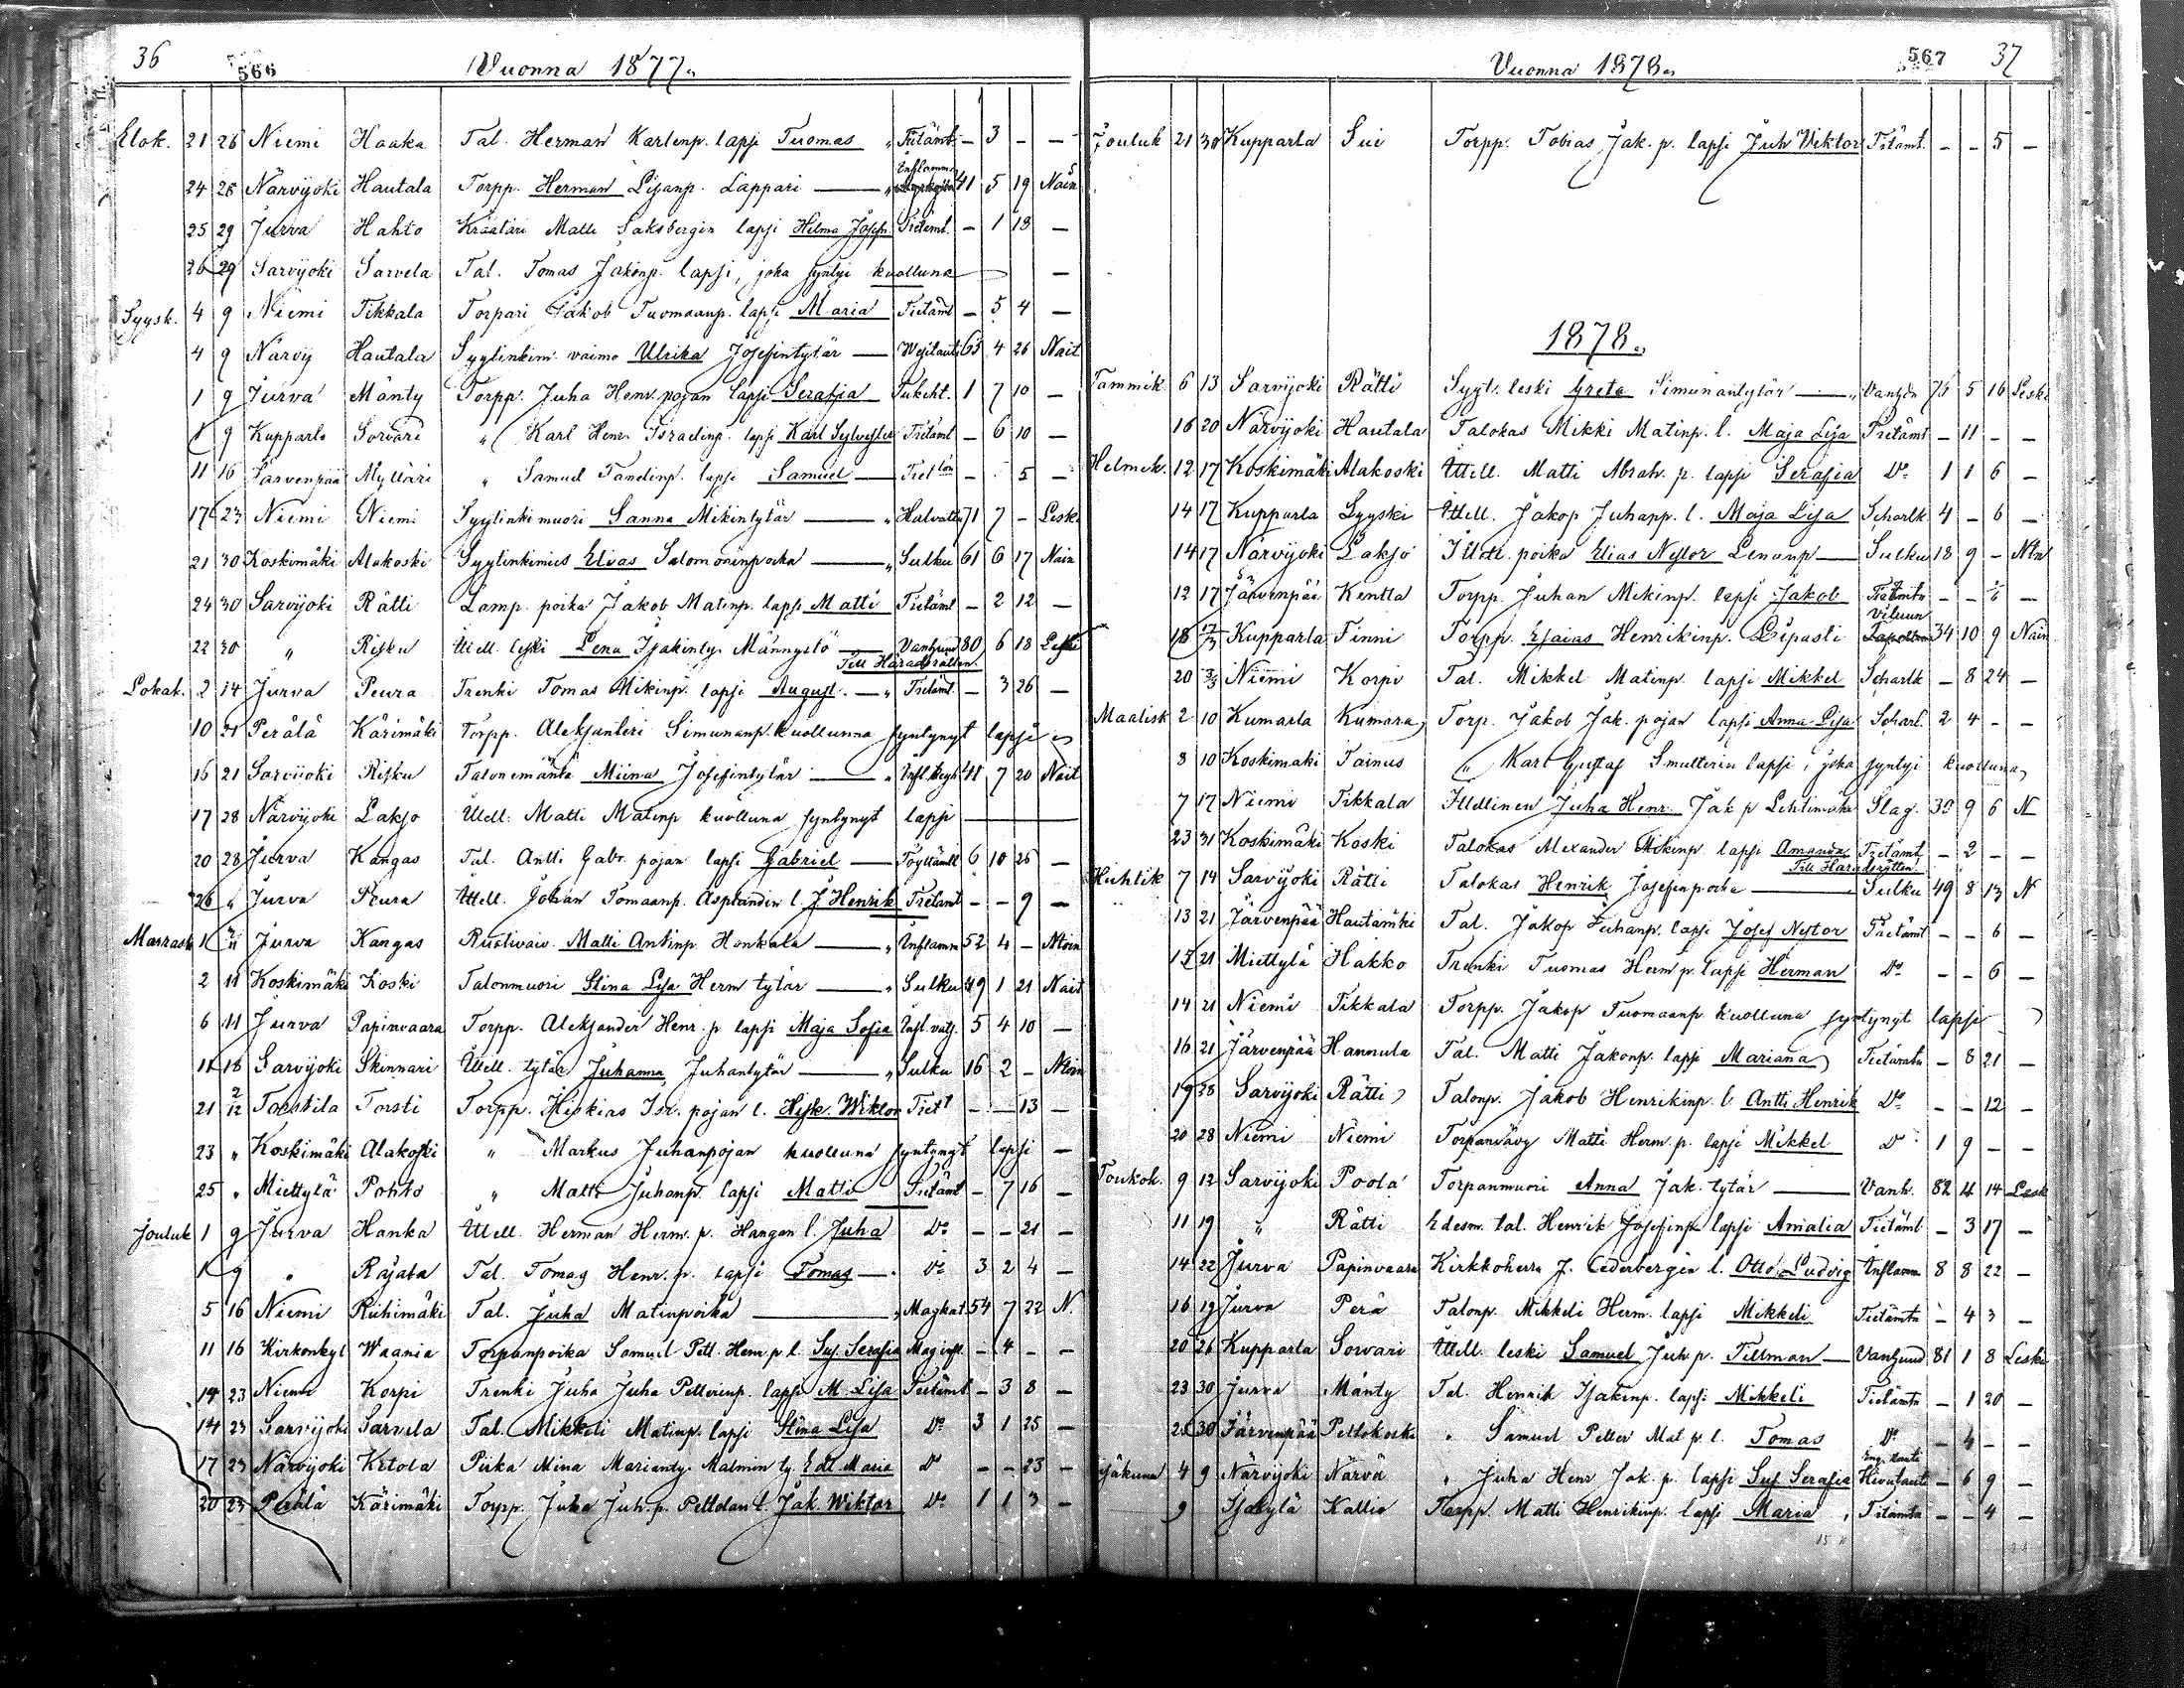 36 566 Vuonna 1877.
Elok. 21 26 Niemi Haaka Tal. Herman Karlenp. lapsi Tuomas " Tietämt. – 3 – –
Inflamm.
24 26 Närvijoki Hautala Torpp. Herman Lisanp. Lappari — " 41 5 19 Nain
25 29 Jurva Hahto Kräätäri Matti Saksbergin lapsi Hilma Josefn Tietämt. – 1 18 –
26 29 Sarvijoki Sarvela Tal. Tomas Jakonp. lapsi, joka syntyi kuolluna –
Syysk. 4 9 Niemi Tikkala Torpari Jakob Tuomaanp. lapsi Maria Tietämt – 5 4 –
4 9 Närvij Hautala Syytinkim. vaimo Ulrika Josefintytär — Wesitauti 65 4 26 Nait
1 9 Jurva Mänty Torpp. Juha Henr. pojan lapsi Serafia Tukeht. 1 7 10 –
1 9 Kupparla Sorvari " Karl Henr. Israelinp. lapsi Karl Sylvester Tietämt – 6 10 –
11 16 Järvenpää Mylläri " Samuel Tanelinp. lapsi Samuel — – – 5 –
17 23 Niemi Niemi Syytinkimuori Sanna Mikintytär — " Halvattu 71 7 – Lesk.
21 30 Koskimäki Alakoski Syytinkimies Elias Salomoninpoika — " Sulku 61 6 17 Nain
24 30 Sarvijoki Rätti Lamp. poika Jakob Matinp. lapsi Matti Tietämt – 2 12 –
22 30 " Risku Itsell. leski Lena Isakinty. Männystö — Vanhuud 80 6 18 Leski
Till Häradsrätten.
Lokak. 2 14 Jurva Peura Trenki Tomas Mikinp. lapsi August. — " Tietämt. – 3 26 –
10 21 Perälä Kärimäki Torpp. Aleksanteri Simunanp. kuollunna syntynyt lapsi
16 21 Sarvijoki Risku Talonemäntä Miina Josefintytär — " 41 7 20 Nait
17 28 Närvijoki Laksо Itsell. Matti Matinp kuolluna syntynyt lapsi —
20 28 Jurva Kangas Tal. Antti Gabr. pojan lapsi Gabriel — 6 10 25 –
26 " Jurva Peura Itsell. Johan Tomaanp. Asplandin l. J Henrik Tietämt – – 9 –
Marrask 1 4/11 Jurva Kangas Ruotivaiv. Matti Antinp. Honkala — " Inflamm 52 4 – Ntoin
2 11 Koskimäki Koski Talonmuori Stina Lisa Herm tytär — " Sulku 49 1 21 Nait
6 11 Jurva Papinvaara Torpp. Aleksander Henr. p lapsi Maja Sofia 5 4 10 –
11 18 Sarvijoki Skinnari Itsell. tytär Juhanna Juhantytär — " Sulku 16 2 – Ntoin
21 2/12 Torstila Torsti Torpp. Hiskias Isr. pojan l. Hisk. Wiktor Tiet – – 13 –
23 " Koskimäki Alakoski " Markus Juhanpojan kuolluna syntynyt lapsi –
25 " Miettylä Pohto " Matti Juhanp. lapsi Matti Tietämt – 7 16 –
Jouluk 1 9 Jurva Hanka Itsell. Herman Herm. p. Hangan l. Juha Do – – 21 –
1 9 " Rajala Tal. Tomas Henr. p. lapsi Tomas — Do 3 2 4 –
5 16 Niemi Riihimäki Tal. Juha Matinpoika — " Maykat 54 7 22 N.
11 16 Kirkonkyl Waania Torpanpoika Samuel Pett. Henr. p l. Sus. Serafia – 4 – –
14 23 Niemi Korpi Trenki Juha Juha Petterinp. lapsi M. Lisa Tietämt – 3 8 –
14 23 Sarvijoki Sarvela Tal. Mikkeli Matinp. lapsi Stina Lisa Do 3 1 25 –
17 23 Närvijoki Ketola Piika Mina Marianty. Malmin ty. Edl Maria Do – – 23 –
20 23 Perälä Kärimäki Torpp. Juha Juh. p. Pettolan l. Jak. Wiktor Do 1 1 3 –
Vuonna 1878. 567 37
Jouluk 21 30 Kupparla Sui Torpp. Tobias Jak. p. lapsi Juh Wiktor Tietämt. – – 5 –
1878.
Tammik. 6 13 Sarvijoki Rätti Syyt. leski Greta Simunantytär — " Vanhdn 75 5 16 Leski
16 20 Närvijoki Hautala Talokas Mikki Matinp. l. Maja Lisa Tietämt – 11 – –
Helmik. 12 17 Koskimäki Alakoski Itsell. Matti Abrah. p. lapsi Serafia Do 1 1 6 –
14 17 Kupparla Syyski Itsell. Jakop Juhapp. l. Maja Lisa Scharlk. 4 – 6 –
14 17 Närvijoki Laksо Itsell. poika Elias Nestor Lenanp — Sulku 18 9 – Ntn
12 17 Järvenpää Kentta Torpp. Juhan Mikinp. lapsi Jakob Tietämtn – – 6 –
Viluun
18 17/3 Kupparla Finni Torpp. Esaias Henrikinp. 34 10 9 Nain
20 3/3 Niemi Korpi Tal. Mikkel Matinp. lapsi Mikkel Scharlk – 8 24 –
Maalisk 2 10 Kumarla Kumara Torp. Jakob Jak. pojan lapsi Anna Lisa Scharl. 2 4 – –
8 10 Koskimäki Tainus " Karl Gustaf Smulterin lapsi, joka syntyi kuolluna
7 17 Niemi Tikkala Itsellinen Juha Henr. Jak p Lehtimäki Slag. 30 9 6 N
23 31 Koskimäki Koski Talokas Alexander Mikinp lapsi Amanda Tietämt – 2 – –
Till Häradsrätten
Huhtik 7 14 Sarvijoki Rätti Talokas Henrik Josefinpoika — Sulku 49 8 13 N
13 21 Järvenpää Hautamäki Tal. Jakop Juhanp. lapsi Josef Nestor Tietämt – – 6 –
17 21 Miettylä Hakko Trenki Tuomas Herm p. lapsi Herman Do – – 6 –
14 21 Niemi Tikkala Torpp. Jakop Tuomaanp kuolluna syntynyt lapsi
16 21 Järvenpää Hannula Tal. Matti Jakonp. lapsi Mariana Tietämtn – 8 21 –
19 28 Sarvijoki Rätti Talonp. Jakob Henrikinp. l. Antti Henrik Do – – 12 –
20 28 Niemi Niemi Torpanvävy Matti Herm. p. lapsi Mikkel Do 1 9 – –
Toukok. 9 12 Sarvijoki Poola Torpanmuori Anna Jak. tytär — Vanh. 82 4 14 Lesk
11 19 " Rätti Edesm. tal. Henrik Josefinp. lapsi Amalia Tietämt – 3 17 –
14 22 Jurva Papinvaara Kirkkoherra J. Cederbergin l. Otto Ludvig Inflamm 8 8 22 –
16 19 Jurva Perä Talonp. Mikkeli Herm. lapsi Mikkeli Tietämtn – 4 3 –
20 26 Kupparla Sorvari Itsell. leski Samuel Juh. p. Tillman — Vanhuud 81 1 8 Leski
23 30 Jurva Mänty Tal. Henrik Isakinp. lapsi Mikkeli Tietämtn – 1 20 –
25 30 Järvenpää Peltokoski " Samuel Petter Mat p. l. Tomas Do – 4 – –
Kesäkuun 4 9 Närvijoki Närvä " Juha Henr Jak. p. lapsi Sus. Serafia – 6 9 –
9 Isokylä Kallio Torpp. Matti Henrikinp. lapsi Maria " Tietämtn – – 4 –